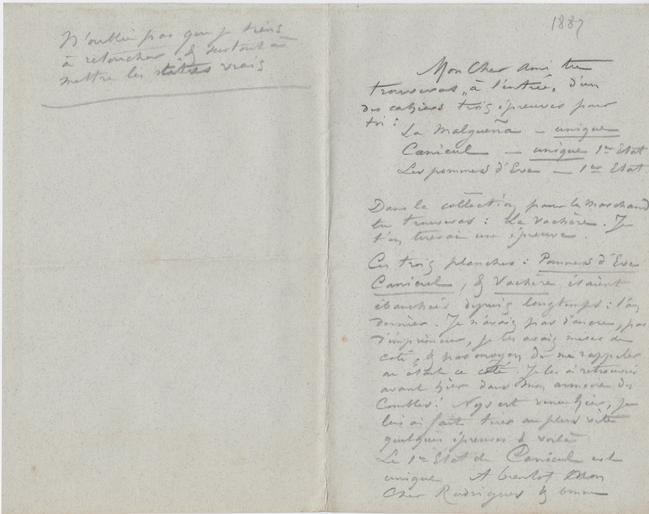 N'oublie pas que je tiens
à retoucher & surtout à
mettre les états vrais
1887
Mon Cher ami tu
trouveras, à l'entrée, d'un
des cahiers trois épreuves pour
toi :
La Malgueña — unique
Canicul — unique 1er Etat
Les pommes d'Eve — 1er Etat
Dans la collection, pour le marchand
tu trouveras : La Vachère. Je
t'en tirerai une épreuve.
Ces trois planches : Pommes d'Eve
Canicul, & Vachère étaient
ébauchées depuis longtemps : l'an
dernier. Je n'avais pas d'encre, pas
d'imprimeur, je les avais mises de
coté, & pas moyen de me rappeler
ou était ce coté. Je les ai retrouvées
avant hier dans mon armoire des
Combles! Nys est venu hier, je
lui ai fait tirer au plus vite
quelques épreuves & voilà
Le 1er Etat de Canicul est
unique A bientot Mon
Cher Rodrigues &